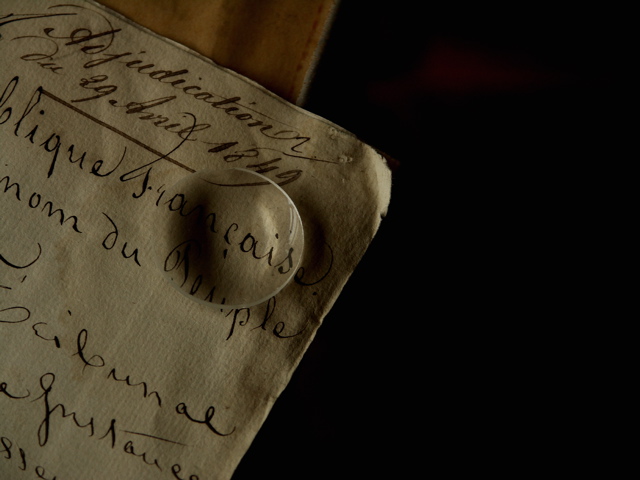 Adjudication
du 29 Avril 1849
blique Française
nom du Peuple
Tribunal
Instance